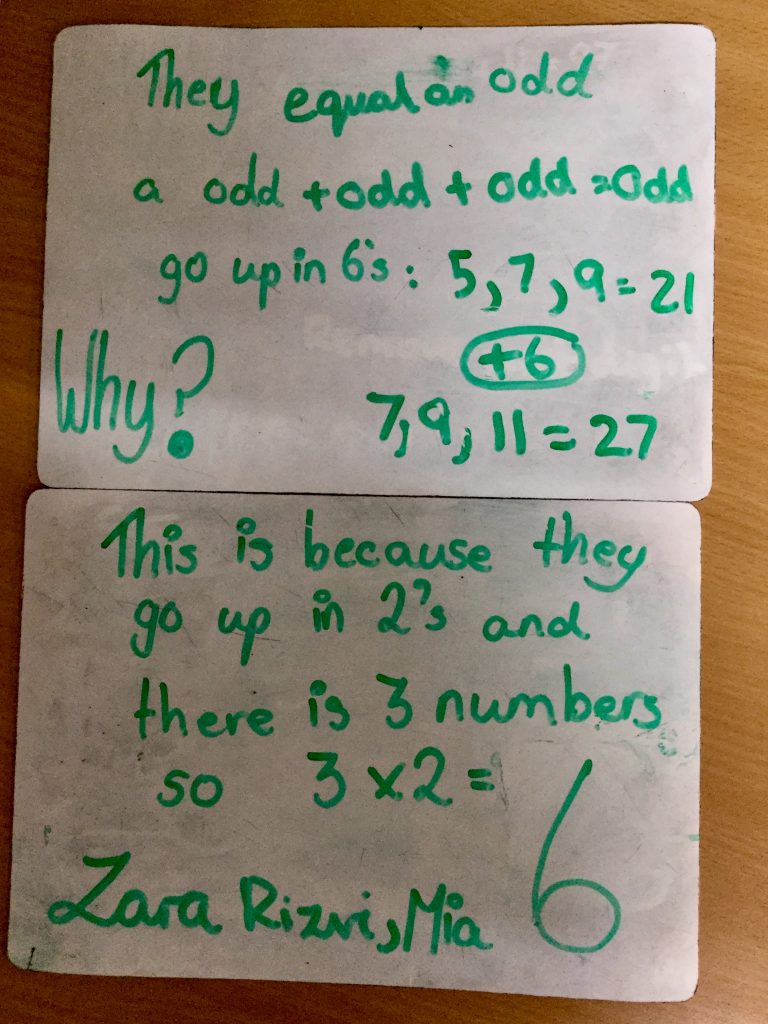 They equal an odd
a odd + odd + odd = odd
go up in 6's : 5, 7, 9 = 21
+6
Why?
7, 9, 11 = 27
This is because they
go up in 2's and
there is 3 numbers
so 3 x 2 = 6
Zara Rizvi, Mia